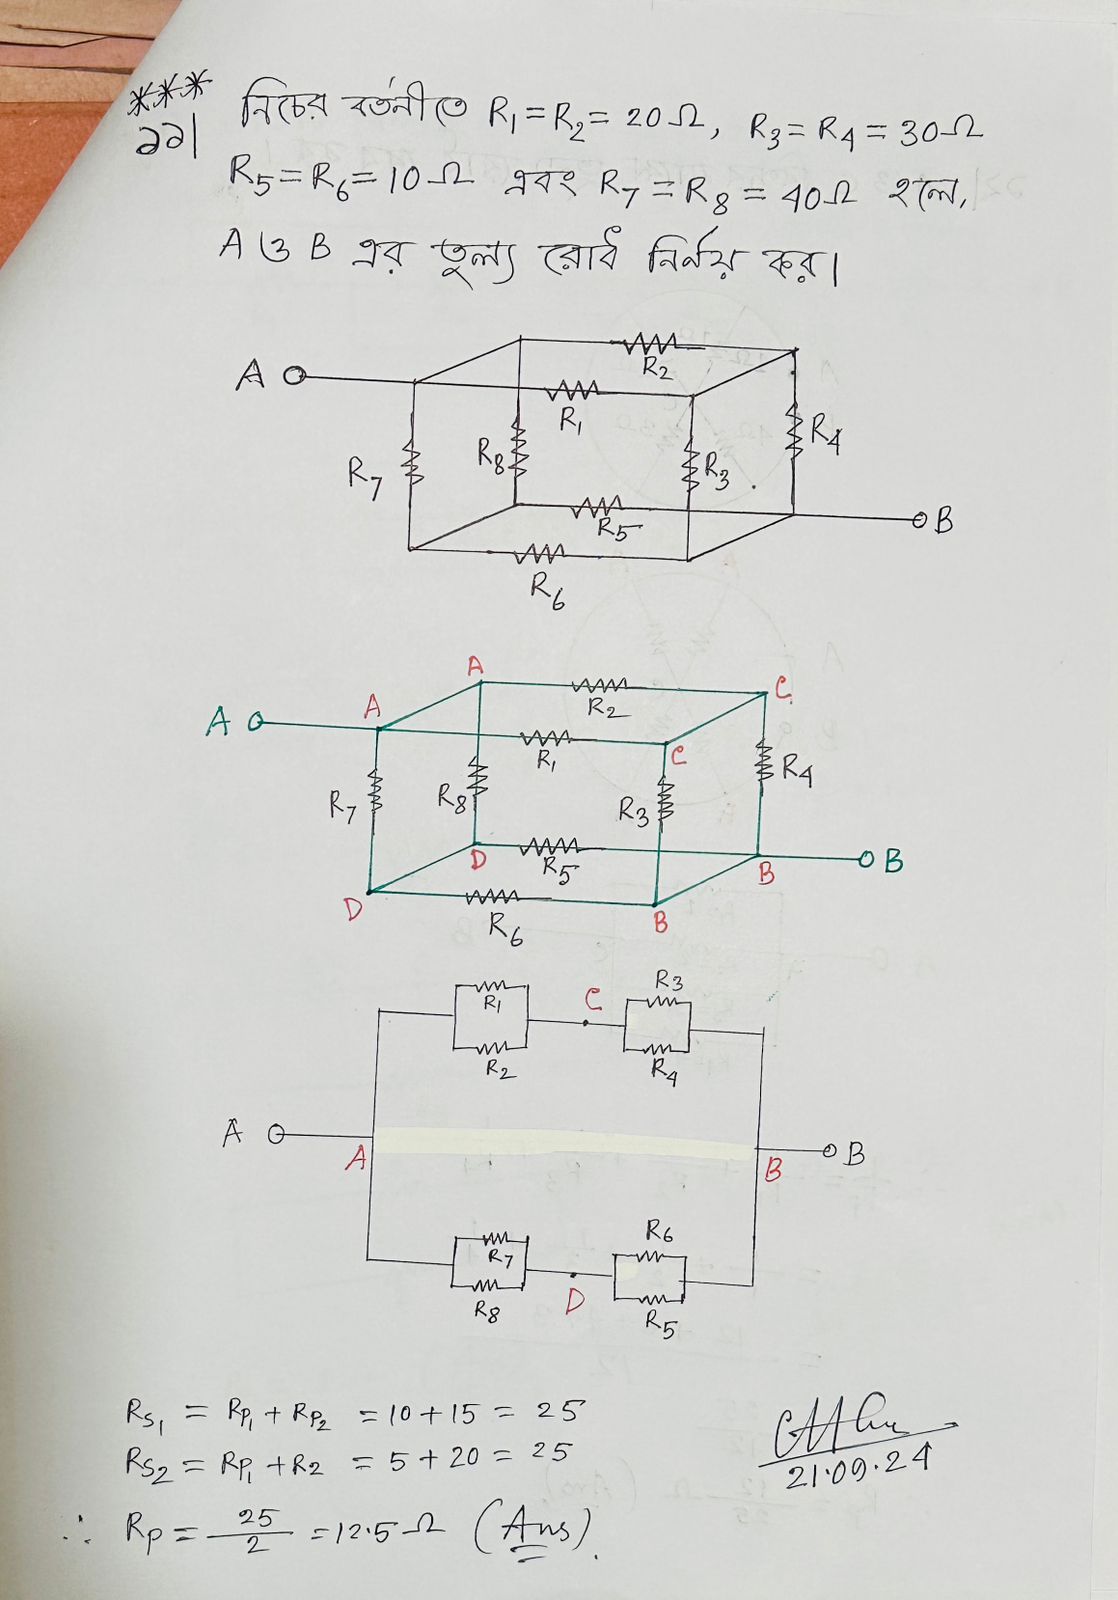 ***
১১। নিচের বর্তনীতে R₁ = R₂ = 20Ω, R₃ = R₄ = 30Ω
R₅ = R₆ = 10Ω এবং R₇ = R₈ = 40Ω হলে,
A ও B এর তুল্য রোধ নির্ণয় কর।
R₂
A
R₁
R₄
R₈
R₃
R₇
R₅
B
R₆
A
C
A
R₂
A
R₁
C
R₄
R₈
R₇
R₃
D
R₅
B
B
D
R₆
B
R₃
R₁
C
R₂
R₄
A
B
A
B
R₆
R₇
D
R₈
R₅
Rs₁ = Rp₁ + Rp₂ = 10 + 15 = 25
Rs₂ = Rp₁ + R₂ = 5 + 20 = 25
21.09.24
∴ Rp = 25/2 = 12.5Ω (Ans).